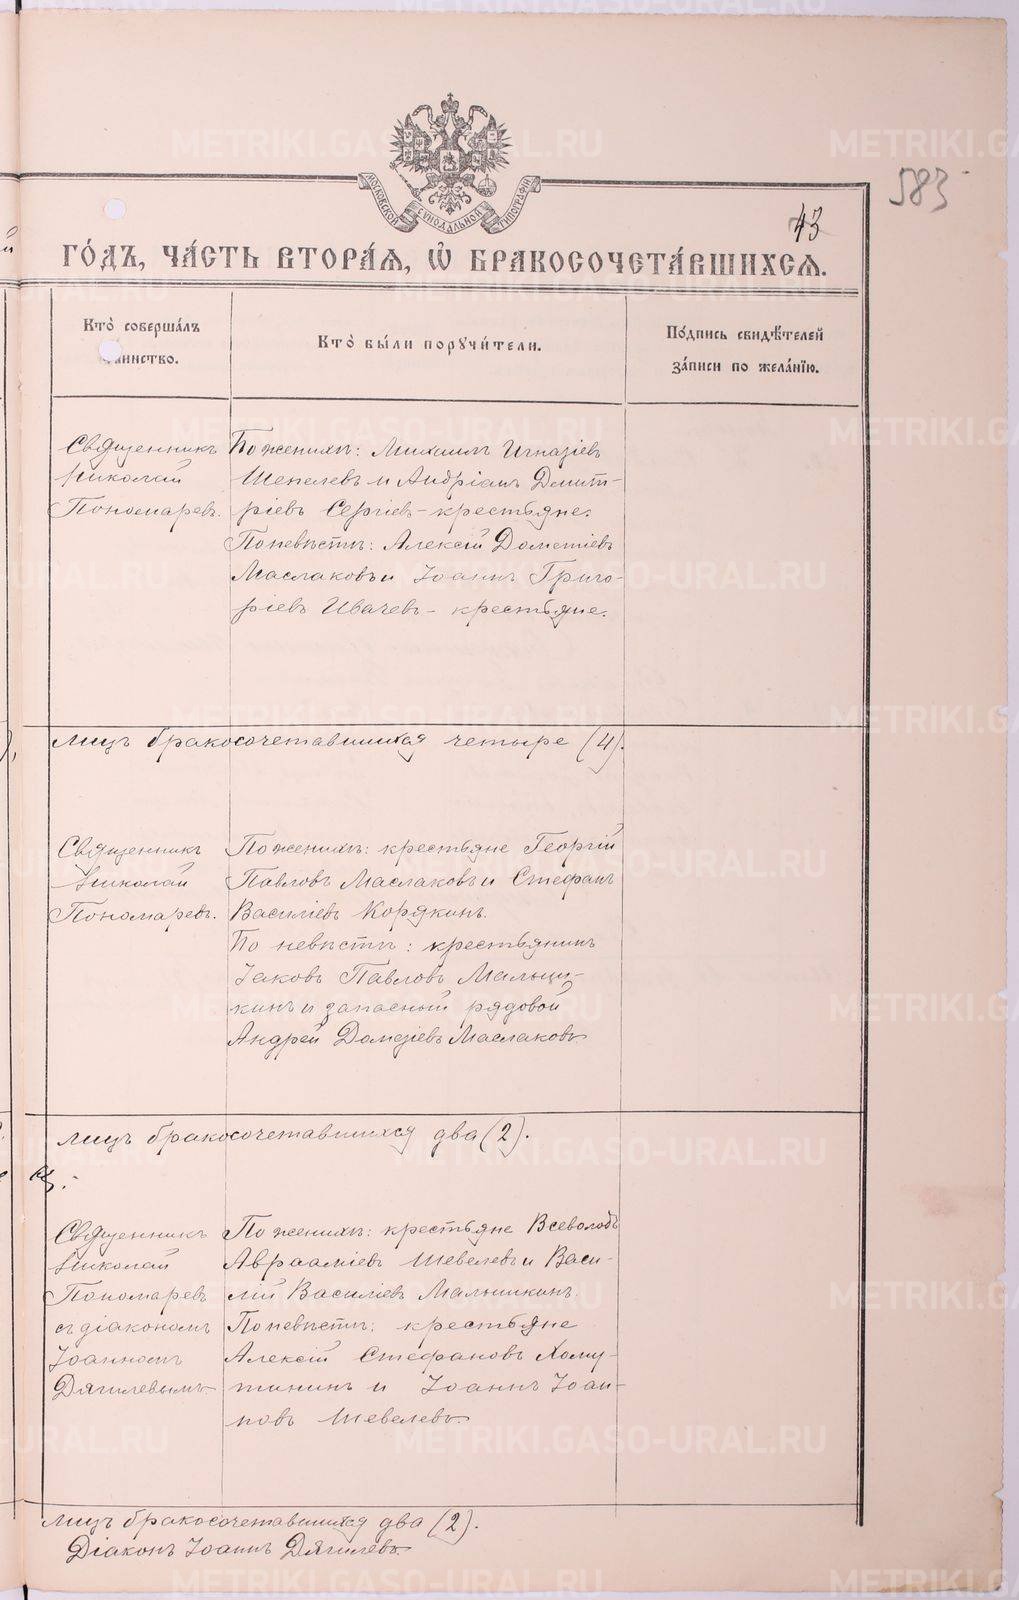 583
43
МОСКОВСКОЙ СѴНОДАЛЬНОЙ ТИПОГРАФІИ
ГО́ДЪ, ЧА́СТЬ ВТОРА́Я, Ѡ҆ БРАКОСОЧЕТА́ВШИХСЯ.
Кто̀ соверша́лъ
таинство.
Кто̀ бы́ли порꙋчи́тели.
По́дпись свидѣ́телей
за́писи по жела́нїю.
Священникъ
Николай
Пономаревъ.
По женихѣ: Михаилъ Игнатіевъ
Шевелевъ и Андріанъ Димит-
ріевъ Сергіевъ - крестьяне.
По невѣстѣ: Алексій Дометіевъ
Маслаковъ и Іоаннъ Григо-
ріевъ Ивачевъ - крестьяне.
лицъ бракосочетавшихся четыре (4).
Священникъ
Николай
Пономаревъ.
По женихѣ: крестьяне Георгій
Павловъ Маслаковъ и Стефанъ
Василіевъ Корякинъ.
По невѣстѣ: крестьянинъ
Іаковъ Павловъ Мальши-
кинъ и запасный рядовой
Андрей Дометіевъ Маслаковъ
лицъ бракосочетавшихся два (2).
Священникъ
Николай
Пономаревъ
съ діакономъ
Іоанномъ
Дягилевымъ
По женихѣ: крестьяне Всеволодъ
Авраамiевъ Шевелевъ и Васи-
лій Василіевъ Мальшкинъ.
По невѣстѣ: крестьяне
Алексій Стефановъ Хому-
тининъ и Іоаннъ Іоан-
новъ Шевелевъ.
лицъ бракосочетавшихся два (2).
Діаконъ Іоаннъ Дягилевъ
METRIKI.GASO-URAL.RU